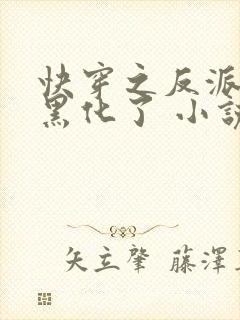 快穿之反派
黑化了 小說
矢立肇 藤澤